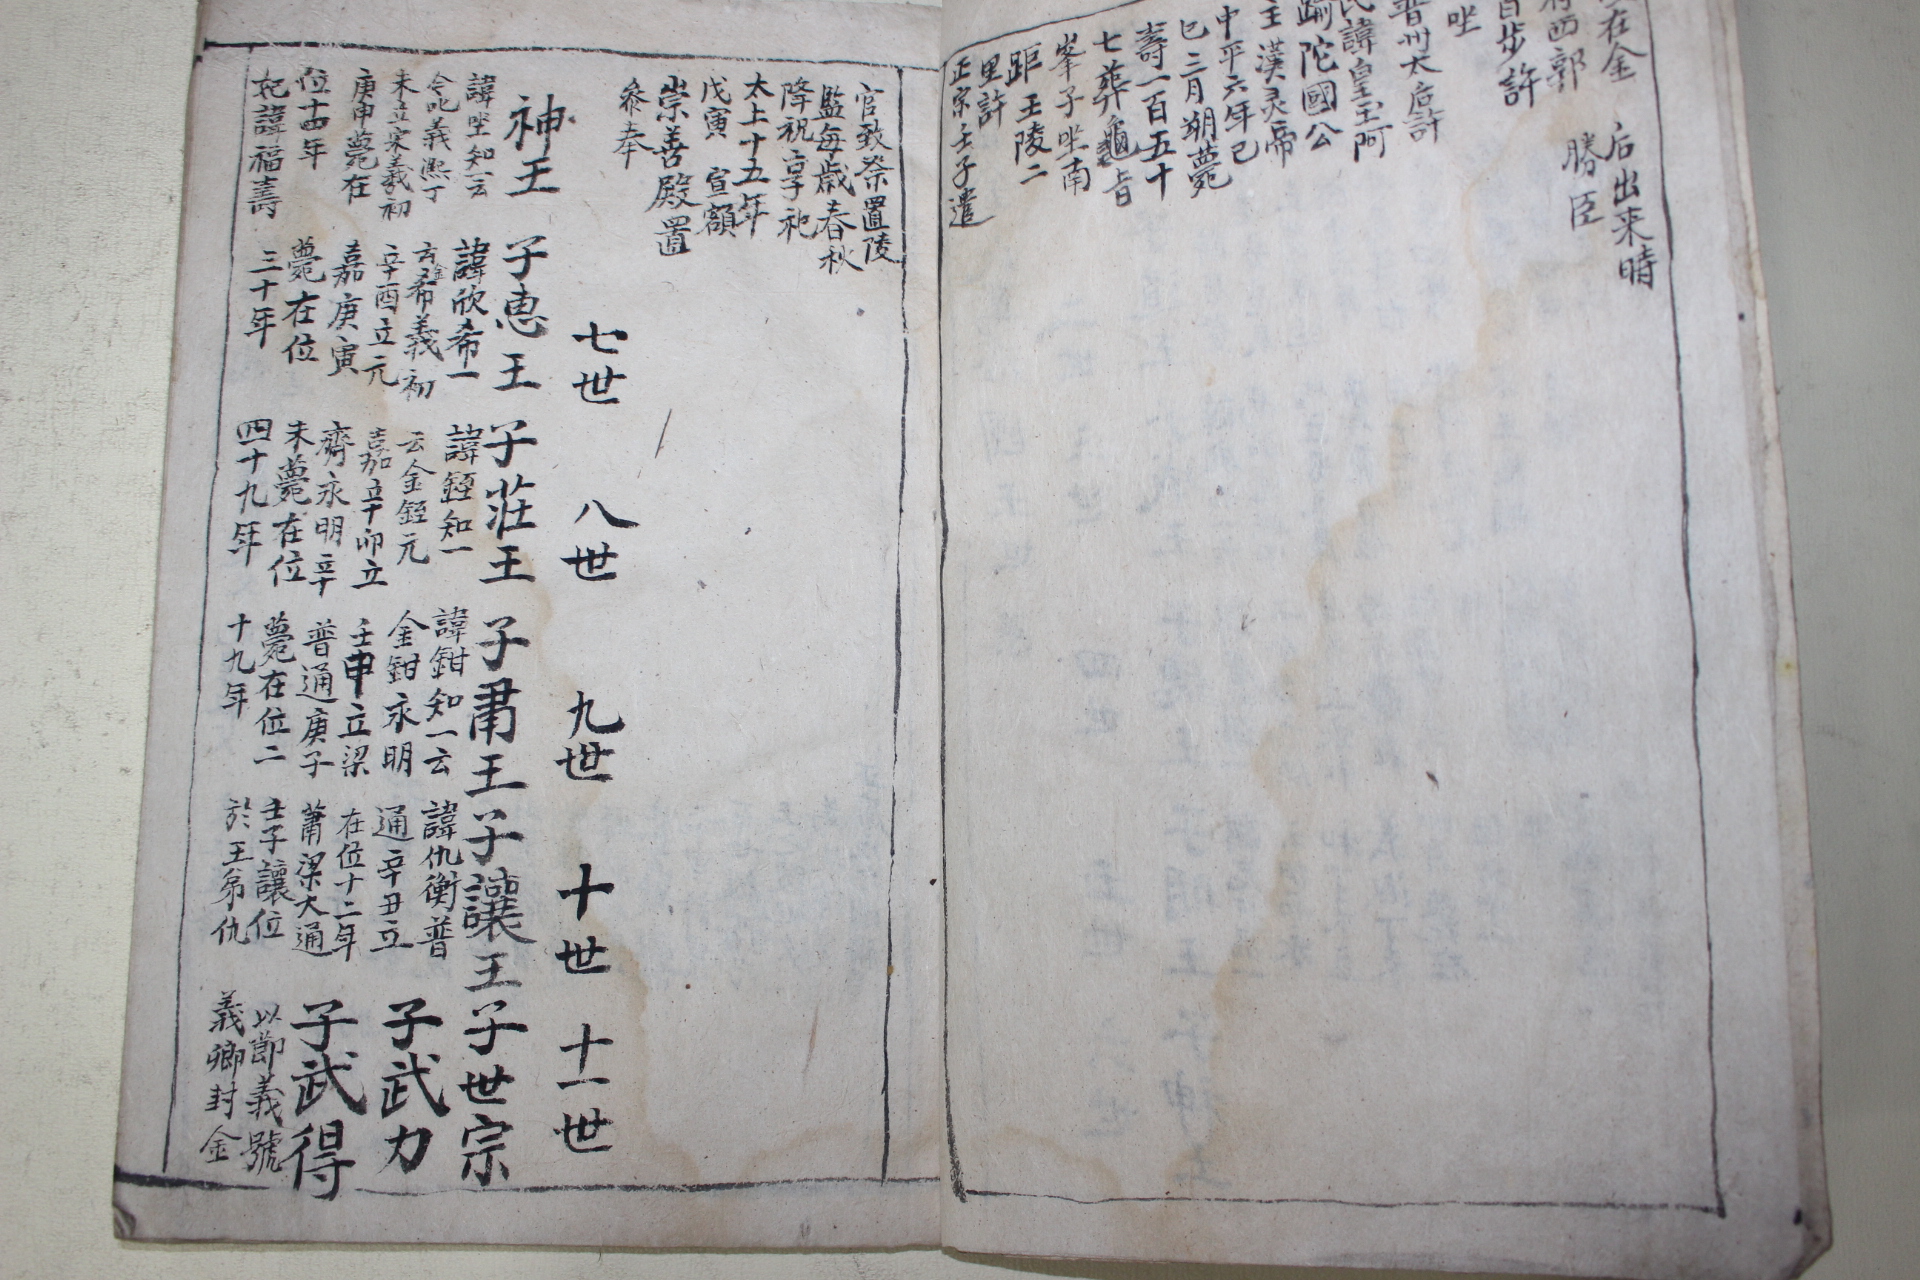 在金
后出来時
西郭
勝臣
百步許
坐
普州太后許
氏諱皇玉阿
踰陀國公
主漢灵帝
中平六年己
巳三月朔薨
壽一百五十
七葬龜旨
峯子坐南
距王陵二
里許
正宗壬子遣
官致祭置陵
監每歲春秋
降祝享祀
太上十五年
戊寅宣額
崇善殿置
叅奉
七世
八世
九世
十世
十一世
神王
諱坐知一云
令叱義熙丁
未立宋義初
庚申薨在
位十四年
妃諱福壽
子惠王
諱欣希一
云金希義初
辛酉立元
嘉庚寅
薨在位
三十年
子莊王
諱銍知一
云金銍元
嘉辛卯立
齊永明辛
未薨在位
四十九年
子肅王
諱鉗知一云
金鉗永明
壬申立梁
普通庚子
薨在位二
十九年
子讓王
諱仇衡普
通辛丑立
在位十二年
蕭梁大通
壬子讓位
於王弟仇
子世宗
子武力
子武得
以節義號
義卿封金